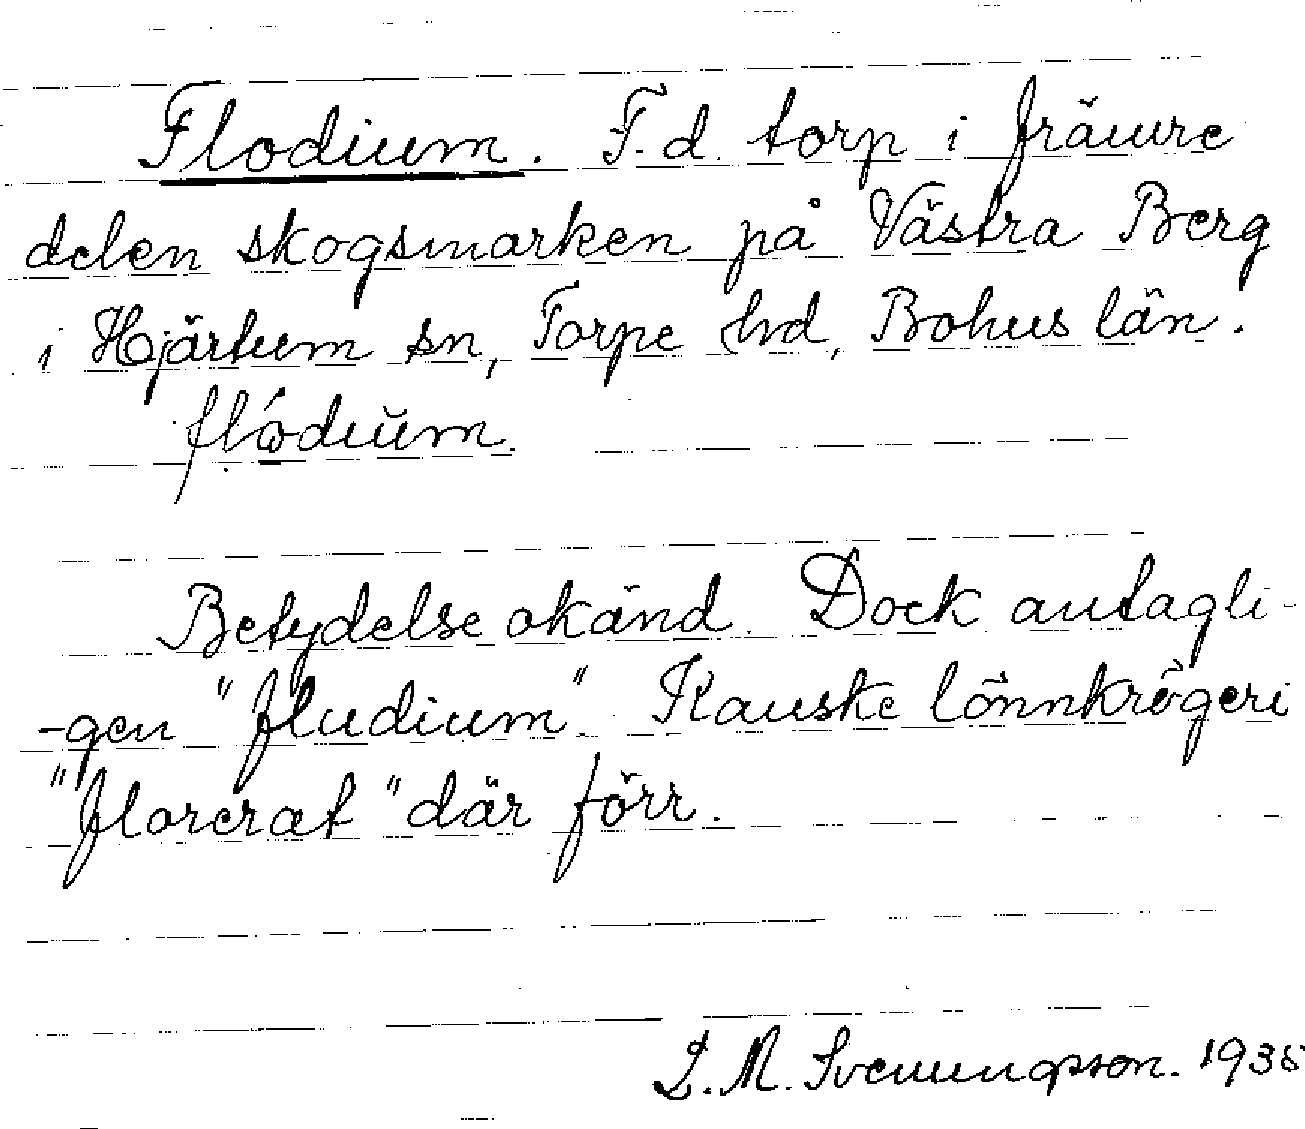 Flodium. F. d. torp i främre
delen skogsmarken på Västra Berg
i Hjärtum sn, Torpe hrd, Bohus län.
fló̤diŭm.
Betydelse okänd. Dock antagli-
-gen "fludium". Kanske lönnkrögeri
"florerat" där förr.
L. M. Svenungsson. 1935